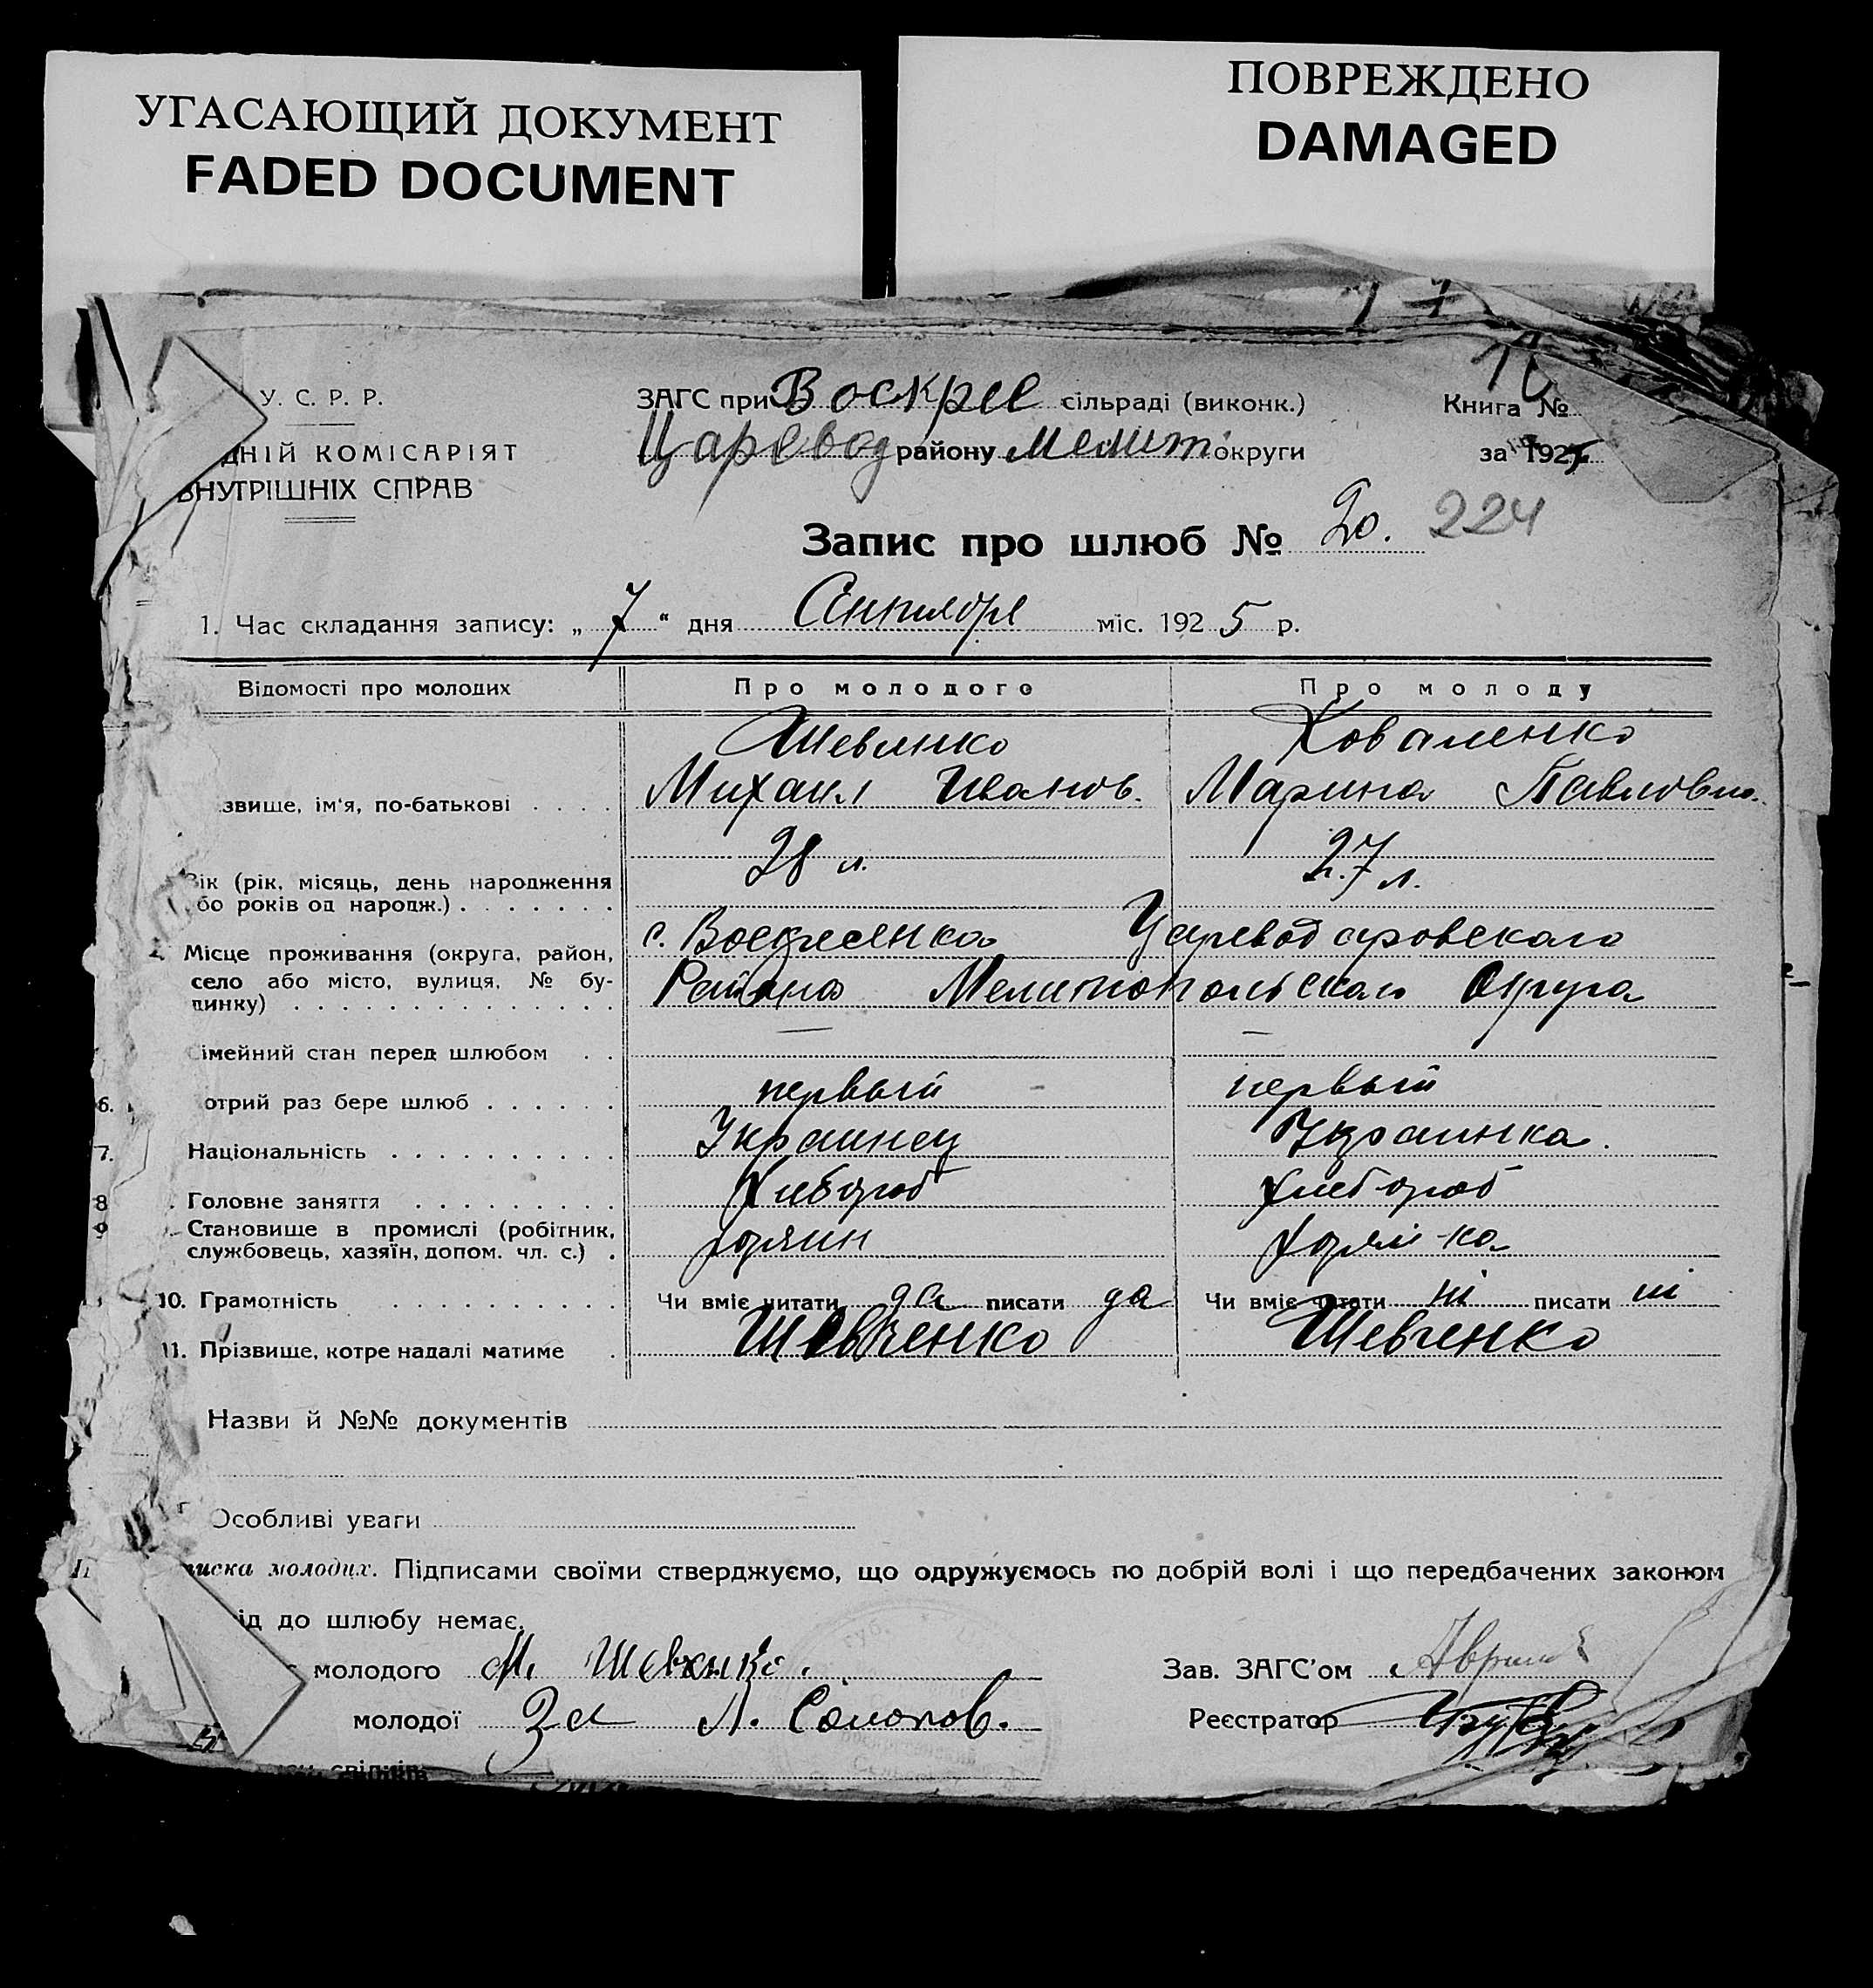 УГАСАЮЩИЙ ДОКУМЕНТ
FADED DOCUMENT
ПОВРЕЖДЕНО
DAMAGED
У. С. Р. Р.
ДНІЙ КОМІСАРІЯТ
ВНУТРІШНІХ СПРАВ
ЗАГС при Воскресе сільраді (виконк.)
Царевод району Мелит округи
Книга №
за 192
Запис про шлюб № 20. 224
1. Час складання запису: „ 7 “ дня Сентября міс. 192 5 р.
Відомості про молодих Про молодого Про молоду
Шевченко Коваленко
звище, ім'я, по-батькові . . . . Михаил Иванов. Марина Павловна.
28 л. 27 л.
Вік (рік, місяць, день народження
бо років од народж.) . . . . . . .
Місце проживання (округа, район, с. Воскресенка Царевод аровского
село або місто, вулиця, № бу-
динку) . . . . . . . . . . . . . . Района Мелитопольского Округа
імейний стан перед шлюбом . . — —
6. отрий раз бере шлюб . . . . . . первый первый
7. Національність . . . . . . . . . . Украинец Украинка.
8 . Головне заняття . . . . . . . . . Хлебороб хлебороб
9 Становище в промислі (робітник,
службовець, хазяїн, допом. чл. с.) .
10. Грамотність . . . . . . . . . . Чи вміє читати да писати да Чи вміє читати ні писати ні
11. Прізвище, котре надалі матиме . Шевченко Шевченко
Назви й №№ документів
Особливі уваги
писка молодих. Підписами своїми стверджуємо, що одружуємось по добрій волі і що передбачених законом
ід до шлюбу немає.
молодого М. Шевченко.
Зав. ЗАГС'ом
молодої За
Реєстратор
свідків